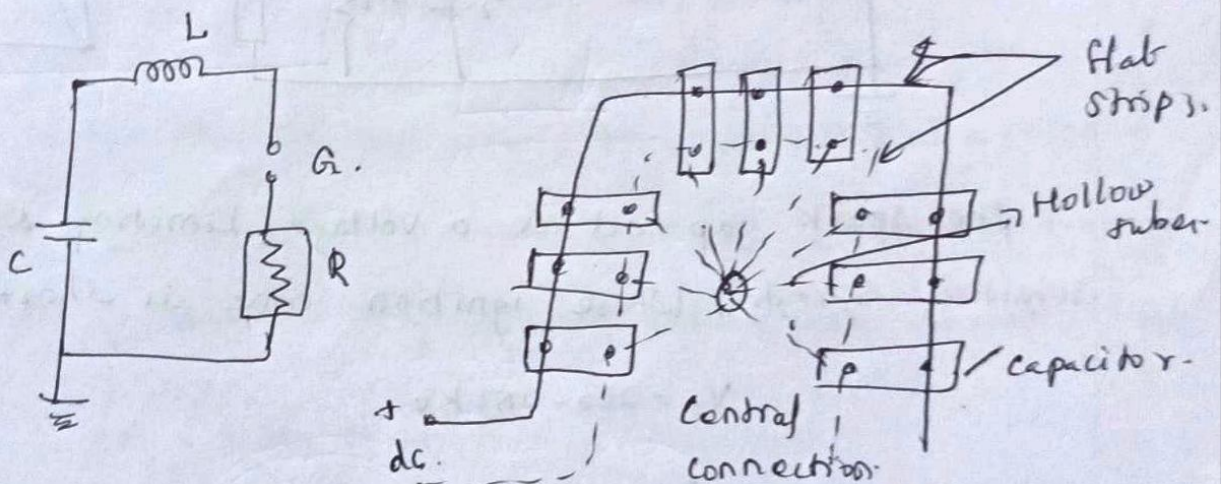 L
G.
C
R
flat
strips.
Hollow
tuber
capacitor.
+
dc.
Central
connection.